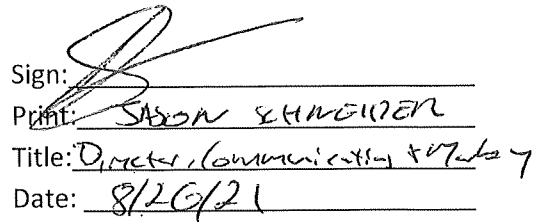 Sign:
Print: JASON SCHNEIDER
Title: Director, Communications + Marketing
Date: 8/26/21